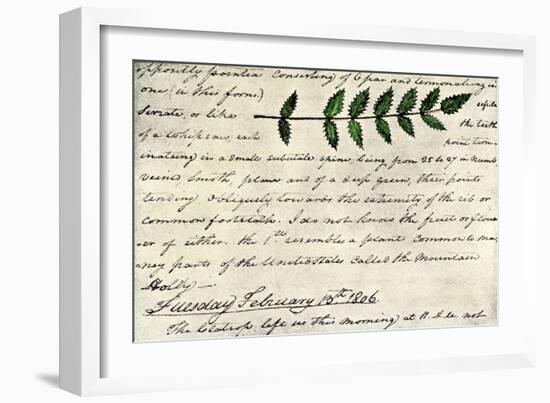 oppositly pointed consisting) of 6 par and terminating in
one (in this form.)
sepile
Serrate, or like
the teeth
of a whipsaw, each
point term-
inateing) in a small subulate spine, being from 25 to 27 in numb
veined, smoth, plane and of a deep green, their points
tending obliquely towards the extremity of the rib or
common footstalk. I do not know the fruit or flow
er of either. the 1st resembles a plant common to ma-
ney parts of the United States called the Mountain
Holly—
Tuesday February 13th 1806.
The Clatsops left us this morning) at 11. A.M. not